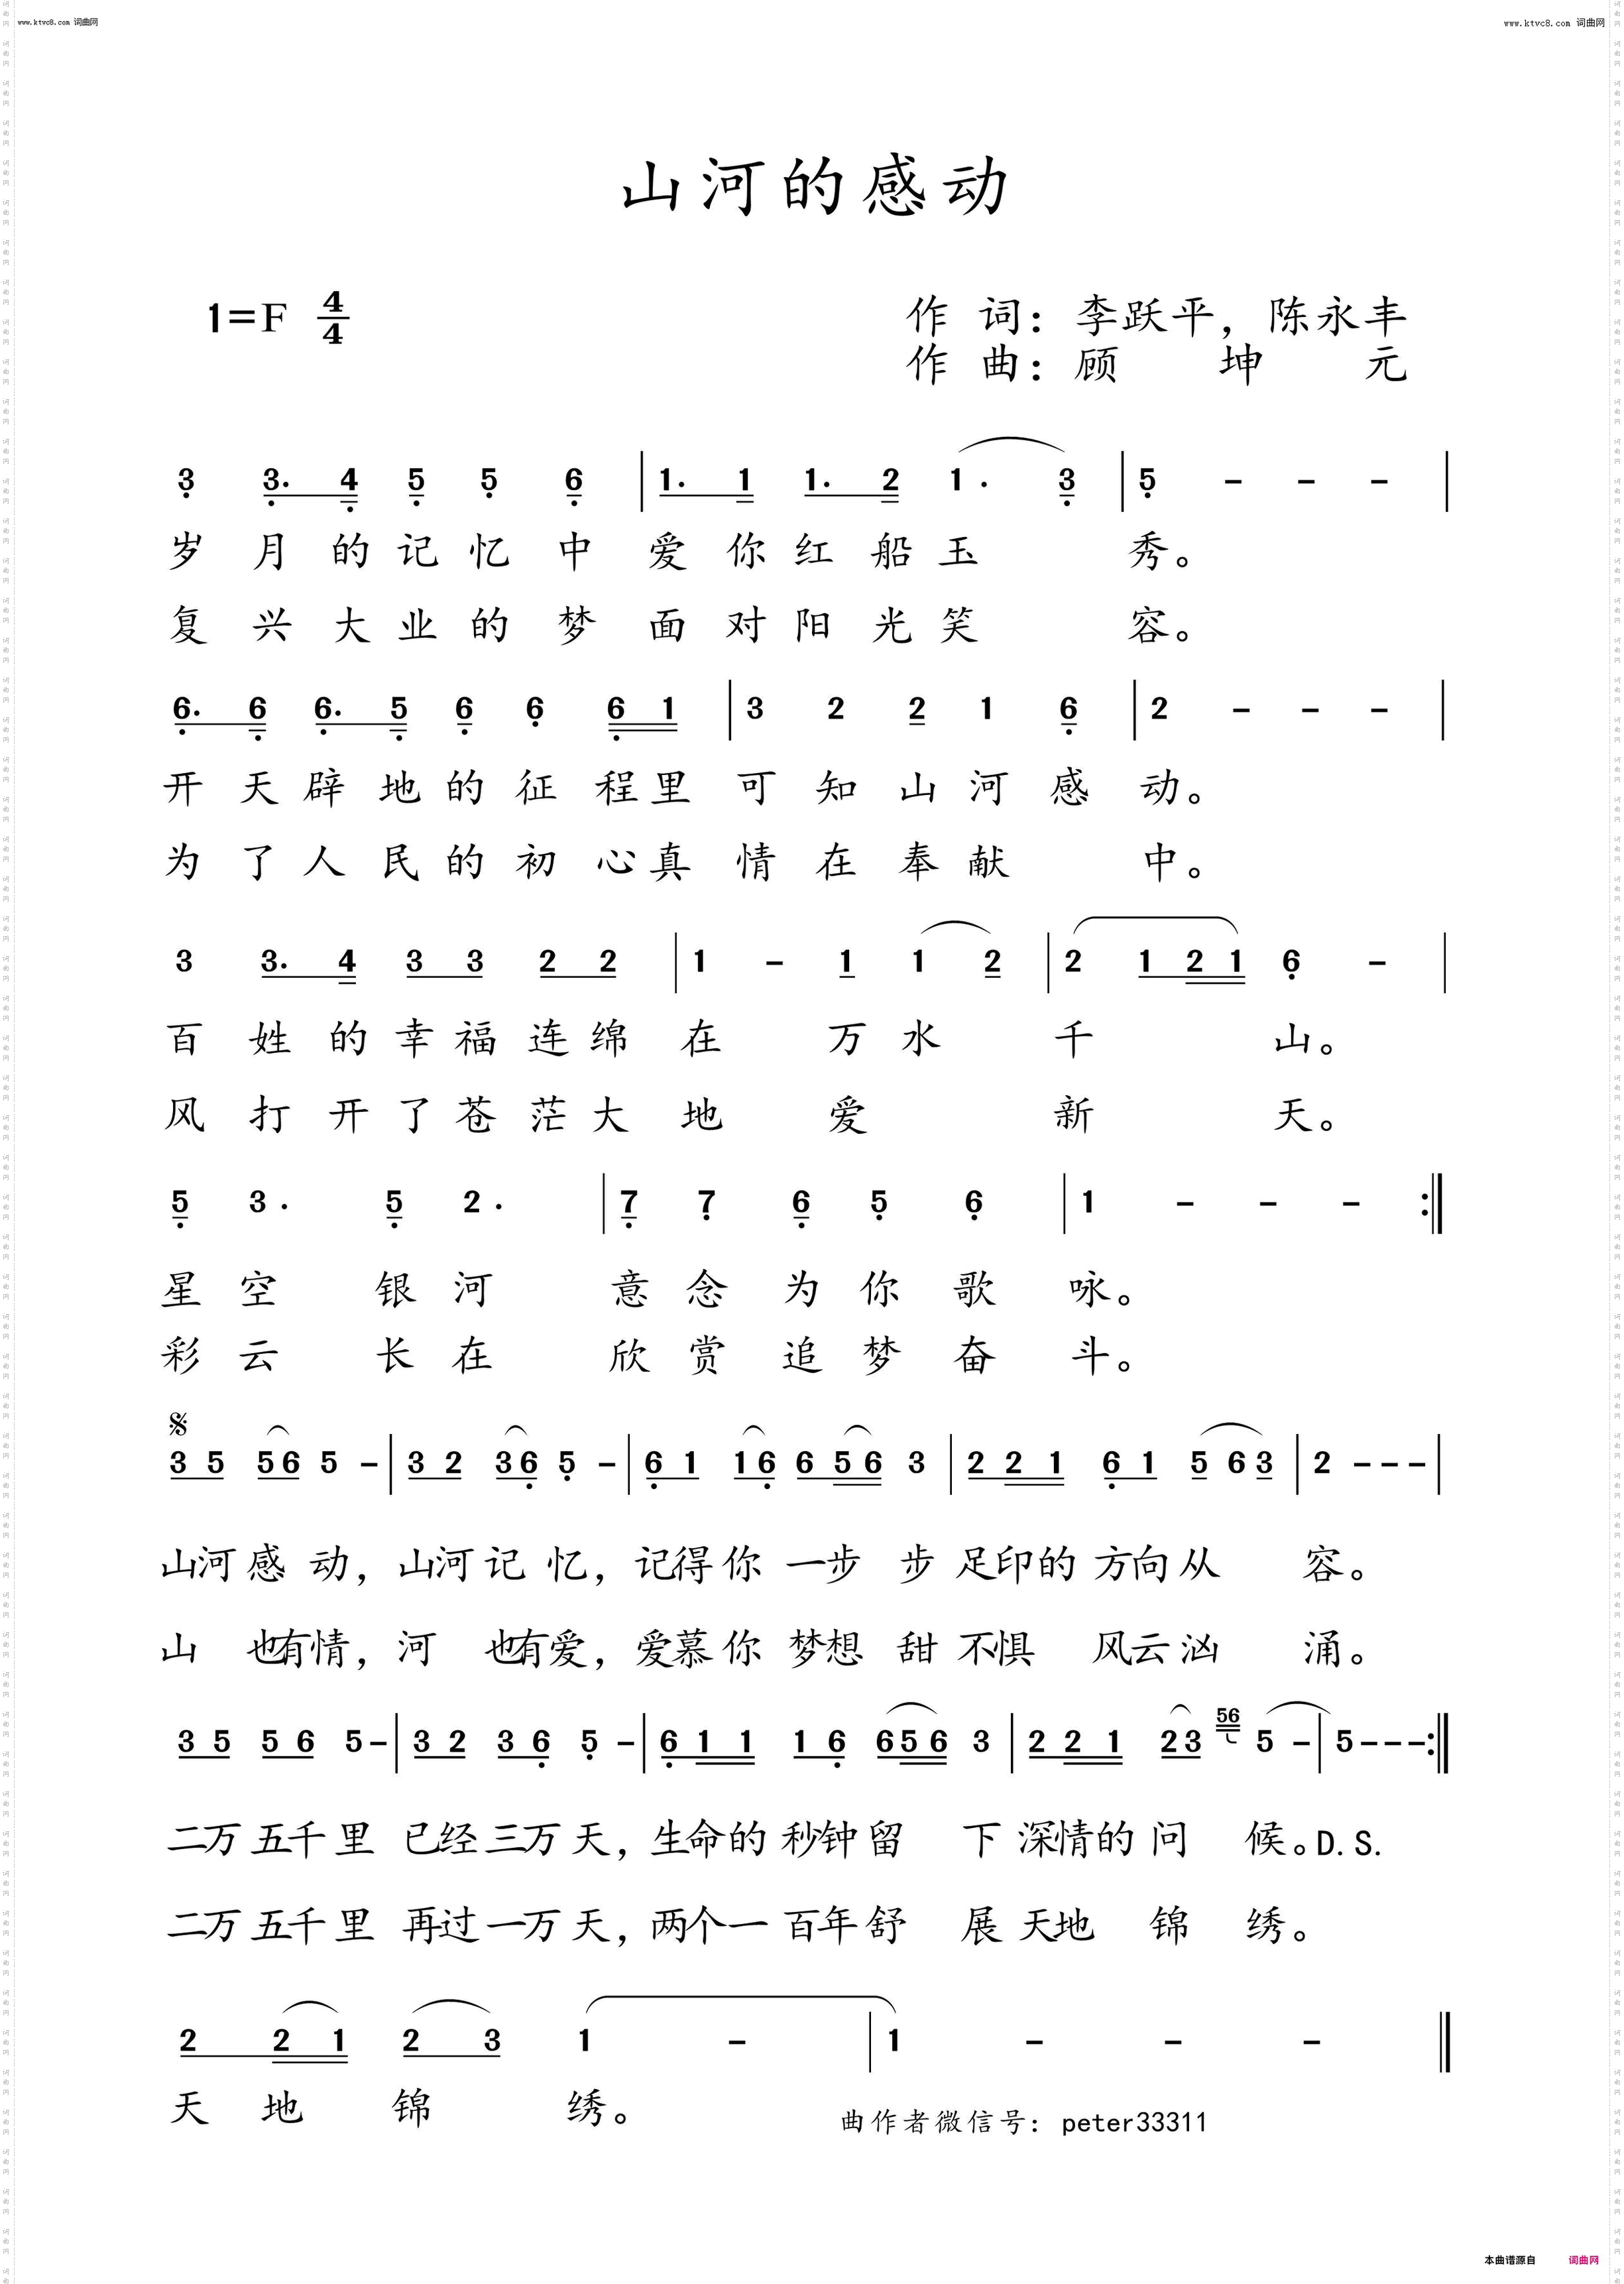 www.ktvc8.com 词曲网
www.ktvc8.com 词曲网
山河的感动
1=F 4/4
作 词：李跃平，陈永丰
作 曲：顾 坤 元
3 3. 4 5 5 6 | 1. 1 1. 2 1. 3 | 5 - - - |
岁 月 的 记 忆 中 爱 你 红 船 玉 秀。
复 兴 大 业 的 梦 面 对 阳 光 笑 容。
6. 6 6. 5 6 6 6 1 | 3 2 2 1 6 | 2 - - - |
开 天 辟 地 的 征 程 里 可 知 山 河 感 动。
为 了 人 民 的 初 心 真 情 在 奉 献 中。
3 3. 4 3 3 2 2 | 1 - 1 1 2 | 2 1 2 1 6 - |
百 姓 的 幸 福 连 绵 在 万 水 千 山。
风 打 开 了 苍 茫 大 地 爱 新 天。
5 3. 5 2. | 7 7 6 5 6 | 1 - - - :|
星 空 银 河 意 念 为 你 歌 咏。
彩 云 长 在 欣 赏 追 梦 奋 斗。
3 5 5 6 5 - | 3 2 3 6 5 - | 6 1 1 6 6 5 6 3 | 2 2 1 6 1 5 6 3 | 2 - - - |
山河 感 动，山河 记 忆，记得 你 一步 步 足印的 方向 从 容。
山 也有情，河 也有爱，爱慕 你 梦想 甜 不惧 风云 汹 涌。
3 5 5 6 5 - | 3 2 3 6 5 - | 6 1 1 1 6 6 5 6 3 | 2 2 1 2 3 56 5 - | 5 - - - :|
二万 五千 里 已经 三万 天，生命的 秒钟 留 下 深情的 问 候。D.S.
二万 五千 里 再过 一万 天，两个一 百年 舒 展 天地 锦 绣。
2 2 1 2 3 1 - | 1 - - - ‖
天 地 锦 绣。
曲作者微信号：peter33311
本曲谱源自 词曲网